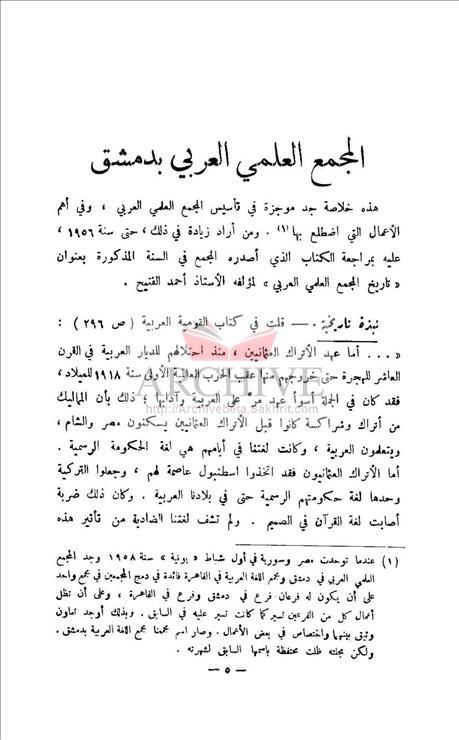 المجمع العلمي العربي بدمشق
هذه خلاصة جد موجزة في تأسيس المجمع العلمي العربي ، وفي أهم
الأعمال التي اضطلع بها (١) . ومن أراد زيادة في ذلك ، حتى سنة ١٩٥٦ ،
عليه بمراجعة الكتاب الذي أصدره المجمع في السنة المذكورة بعنوان
« تاريخ المجمع العلمي العربي » لمؤلفه الأستاذ أحمد الفتيح .
نبذة تاريخية . — قلت في كتاب القومية العربية ( ص ٢٩٦ ) :
« . . . أما عهد الأتراك العثمانيين ، منذ احتلالهم للديار العربية في القرن
العاشر للهجرة حتى خروجهم منها عقب الحرب العالمية الأولى سنة ١٩١٨ للميلاد ،
فقد كان في الجملة أسوأ عهد مر على العربية وآدابها ؛ ذلك بأن المماليك
من أتراك وشراكسة كانوا قبل الأتراك العثمانيين يسكنون مصر والشام ،
ويتعلمون العربية ، وكانت لغتنا في أيامهم هي لغة الحكومة الرسمية .
أما الأتراك العثمانيون فقد اتخذوا اسطنبول عاصمة لهم ، وجعلوا التركية
وحدها لغة حكومتهم الرسمية حتى في بلادنا العربية . وكان ذلك ضربة
أصابت لغة القرآن في الصميم . ولم تشف لغتنا الضادية من تأثير هذه
(١) عندما توحدت مصر وسورية في أول شباط « يونية » سنة ١٩٥٨ وجد المجمع
العلمي العربي في دمشق ومجمع اللغة العربية في القاهرة فائدة في دمج المجمعين في مجمع واحد
على أن يكون له فرعان فرع في دمشق وفرع في القاهرة ، وعلى أن تظل
أعمال كل من الفرعين تسير كما كانت تسير عليه في السابق . وبذلك أوجد تعاون
وثيق بينهما واختصاص في بعض الأعمال . وصار اسم مجمعنا مجمع اللغة العربية بدمشق .
ولكن مجلته ظلت محتفظة باسمها السابق لشهرته .
— ٥ —
ARCHIVE
http://Archivebeta.Sakhrit.com